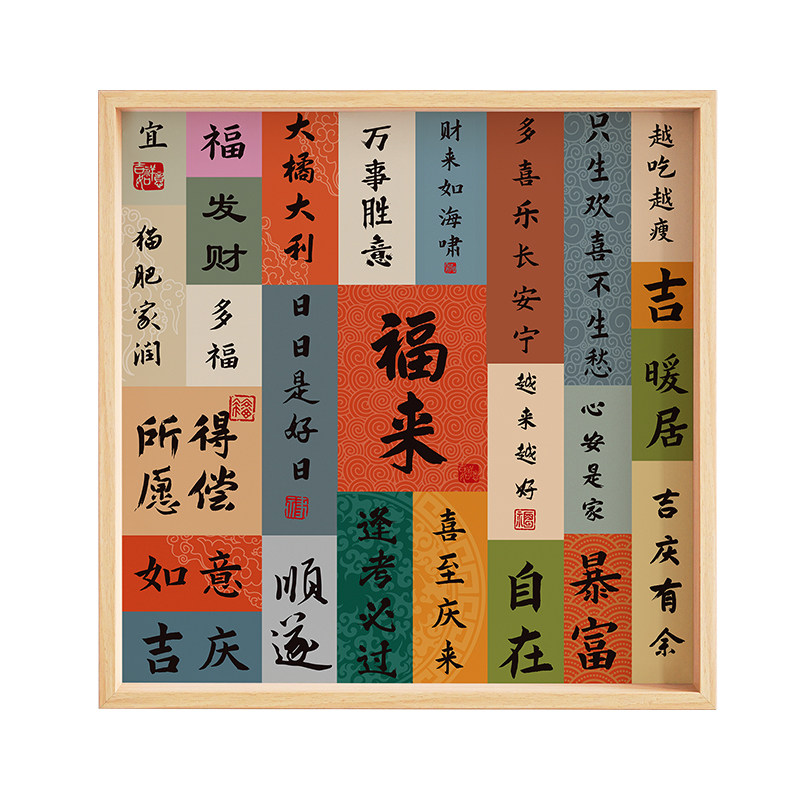 宜
福
发财
大橘大利
万事胜意
财来如海啸
多喜乐长安宁
只生欢喜不生愁
越吃越瘦
猫肥家润
多福
日日是好日
福来
越来越好
吉
暖居
心安是家
得偿
所愿
如意
吉庆
順遂
逢考必过
喜至庆来
自在
暴富
吉庆有余